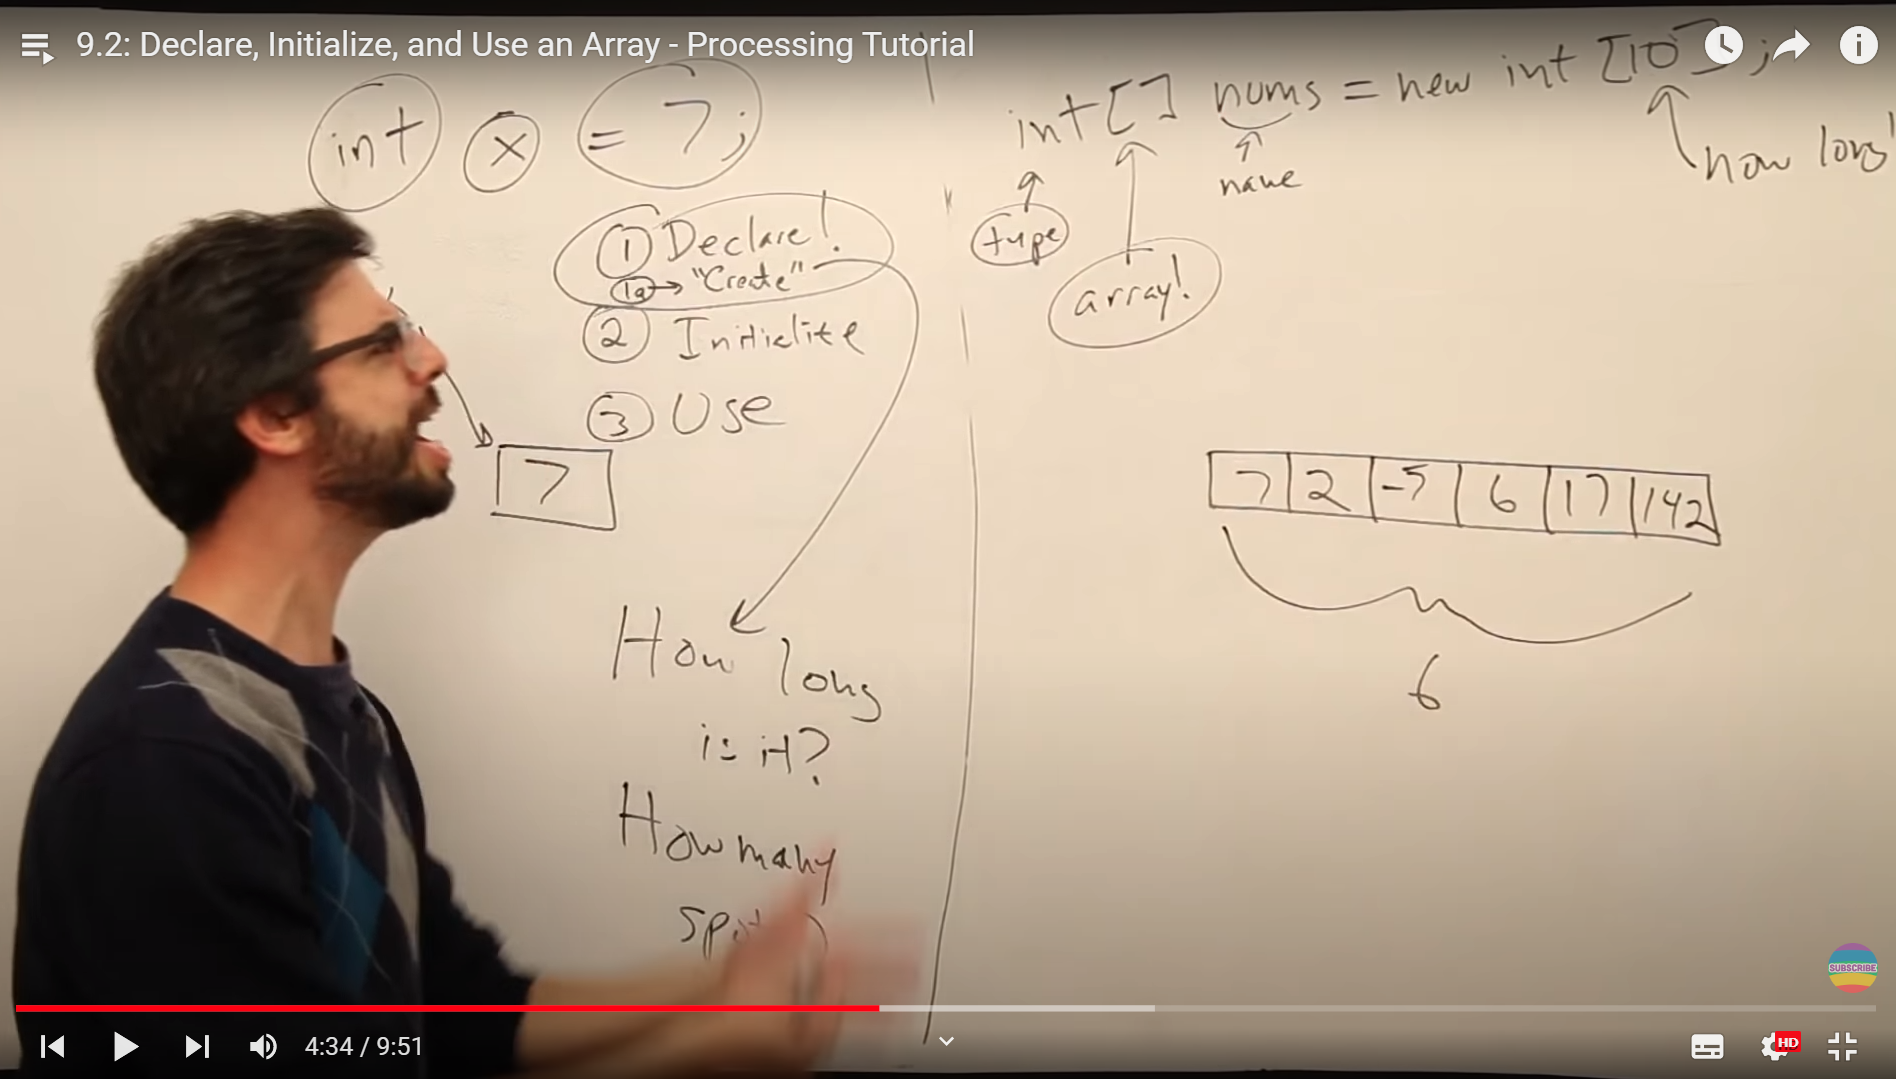 9.2: Declare, Initialize, and Use an Array - Processing Tutorial
int x = 7;
1 Declare!
1a → "Create"
2 Initialize
3 Use
7
How long
is it?
How many
int[] nums = new int [10];
type
array!
name
how long!
7 2 -5 6 17 142
6
SUBSCRIBE
4:34 / 9:51
HD